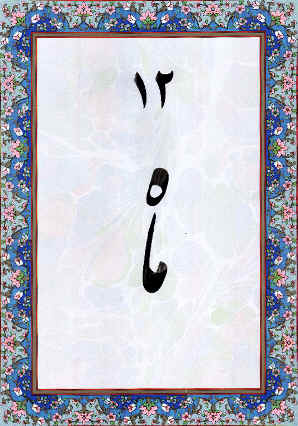 ۱۲
ماه